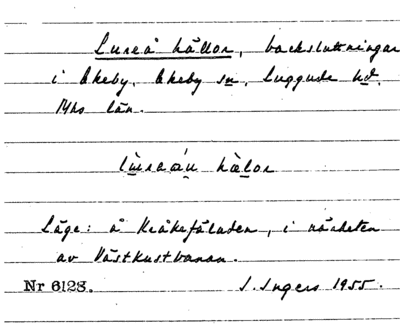 Lureå hällor, backsluttningar
i Ekeby, Ekeby sn, Luggude hd.
Mhs län.
hælor
Läge: å Kråkefäladen, i närheten
av Västkustbanan.
Nr 6128. I. Ingers 1955.